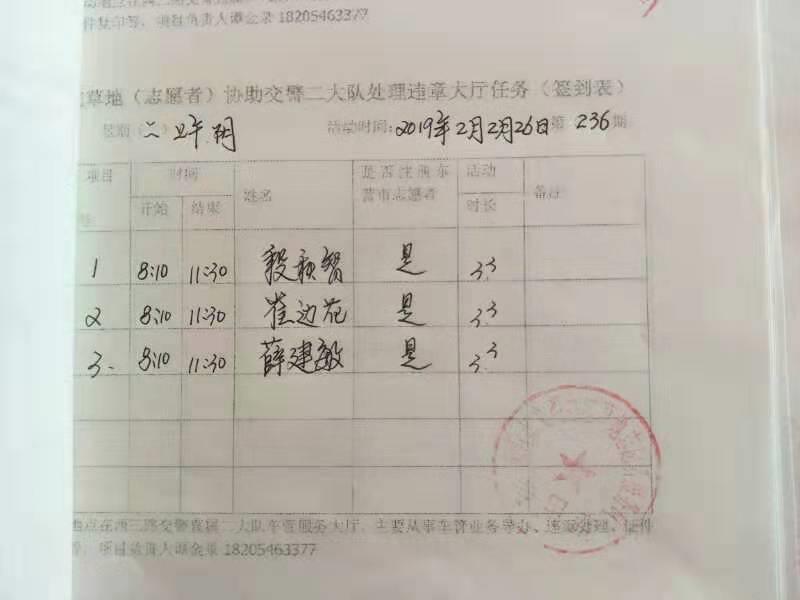 件复印等，项目负责人谭金录 18205463377
草地（志愿者）协助交警二大队处理违章大厅任务（签到表）
星期（二 上午
活动时间：2019年2月2月26日第 236 期
项目 时间 姓名 是否注册东营市志愿者 活动时长 备注
开始 结束
1 8:10 11:30 秋智 是 3.3
2 8:10 11:30 崔边花 是 3.3
3. 8:10 11:30 薛建敏 是 3.3
地点在西三路交警直属二大队车管服务大厅，主要从事车管业务导办、违章处理、证件
等，项目负责人谭金录 18205463377